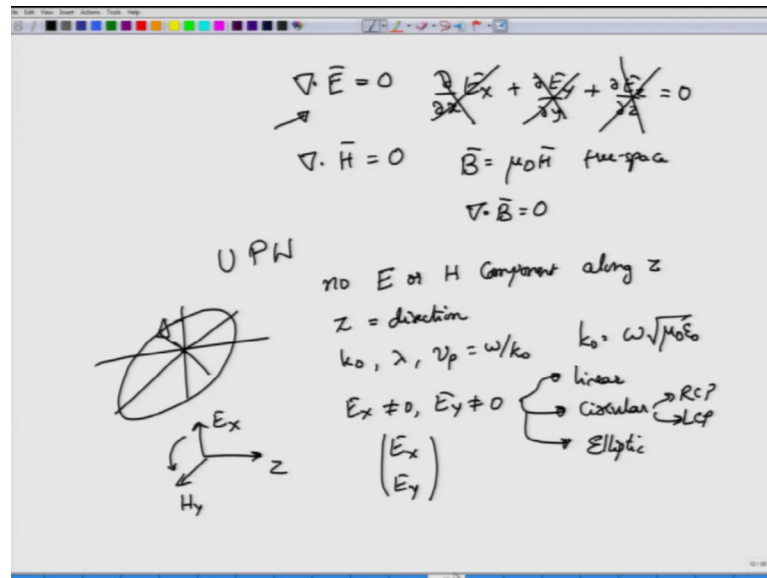 Edit View Insert Actions Tools Help
∇·Ē = 0 ∂/∂x Ēx + ∂Ēy/∂y + ∂Ēz/∂z = 0
∇·H̄ = 0 B̄ = μ0H̄ free-space
∇·B̄ = 0
UPW
no E or H Component along z
z = direction
k0, λ, νp = ω/k0 k0 = ω√μ0ε0
Ex ≠ 0, Ey ≠ 0
linear
Circular RCP
LCP
Elliptic
(Ex
Ey)
Ex
z
Hy